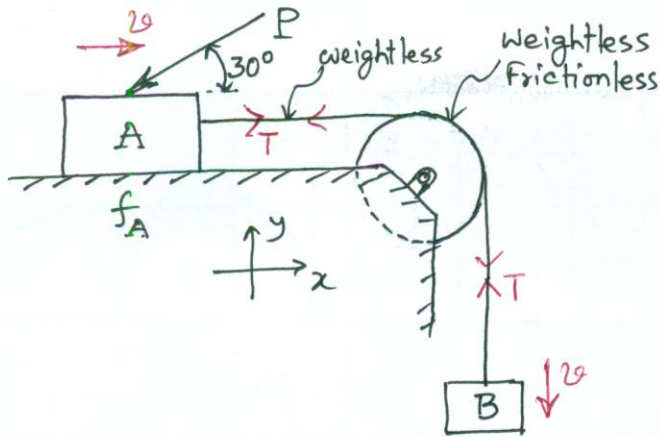 P
ϑ
30°
weightless
weightless
Frictionless
A
T
f_A
y
x
T
B
ϑ